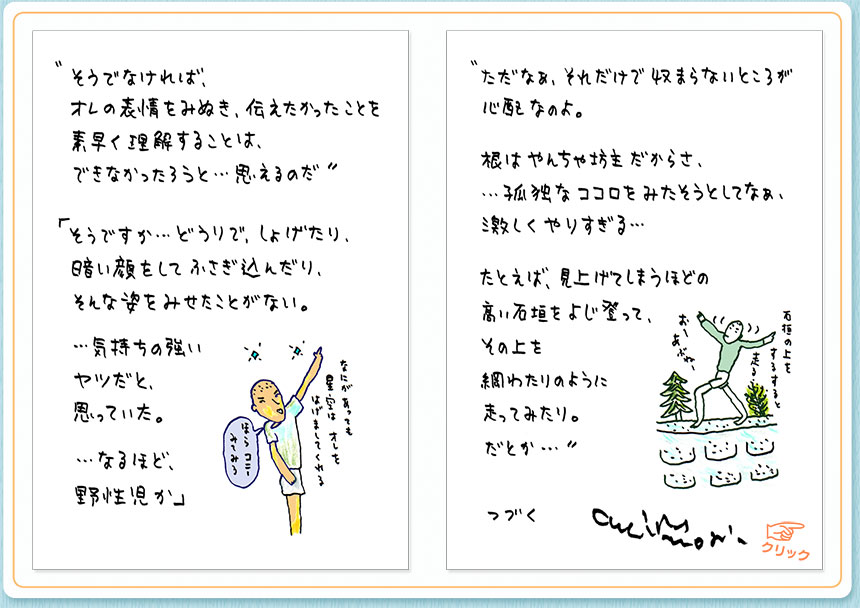 〝そうでなければ、
オレの表情をみぬき、伝えたかったことを
素早く理解することは、
できなかったろうと…思えるのだ〟
「そうですか…どうりで、しょげたり、
暗い顔をしてふさぎ込んだり、
そんな姿をみせたことがない。
…気持ちの強い
ヤツだと、
思っていた。
…なるほど、
野性児か」
なにがあっても
星空は オレを
はげましてくれる
ほら コニー
みてみろ
〝ただなぁ、それだけで収まらないところが
心配なのよ。
根はやんちゃ坊主だからさ、
…孤独なココロをみたそうとしてなぁ、
激しくやりすぎる…
たとえば、見上げてしまうほどの
高い石垣をよじ登って、
その上を
綱わたりのように
走ってみたり。
だとか…〟
石垣の上を
するすると
走る…
おー
あぶねー
つづく
クリック